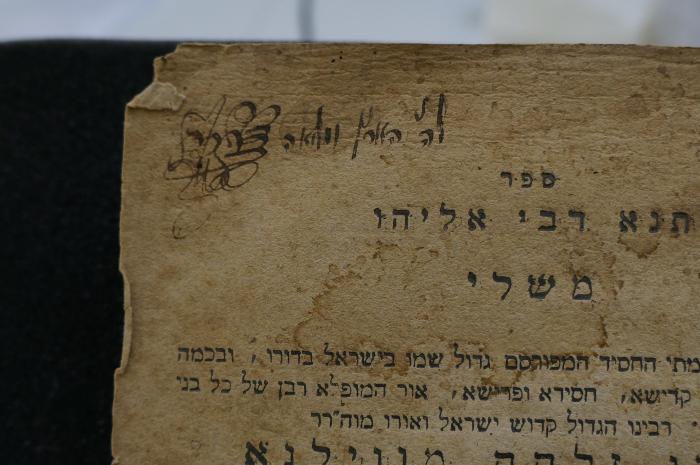 לה' הארץ ומלואה
ספר
תנא דבי אליהו
משלי
מתי החסיד המפורסם גדול שמו בישראל בדורו , ובכמה
קדישא, חסידא ופרישא, אור המופלא רבן של כל בני
רבינו הגדול קדוש ישראל ואורו מוה״רר
מווילנא